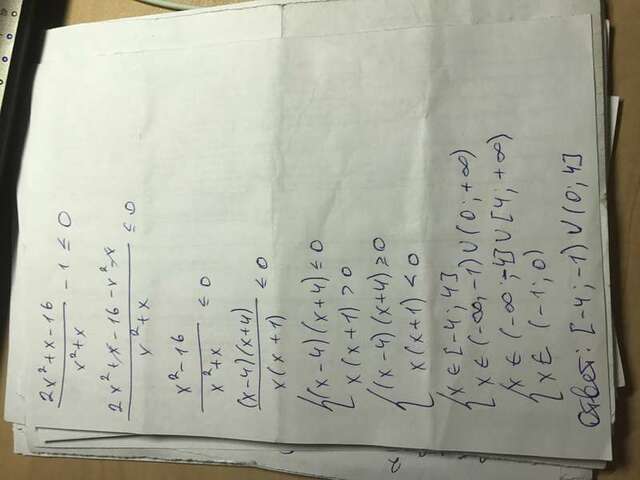 (2x²+x-16)/(x²+x) - 1 ≤ 0
(2x²+x-16-x²-x)/(x²+x) ≤ 0
(x²-16)/(x²+x) ≤ 0
((x-4)(x+4))/(x(x+1)) ≤ 0
{(x-4)(x+4) ≤ 0
x(x+1) > 0
{(x-4)(x+4) ≥ 0
x(x+1) < 0
{x ∈ [-4; 4]
x ∈ (-∞; -1) ∪ (0; +∞)
{x ∈ (-∞; -4] ∪ [4; +∞)
x ∈ (-1; 0)
Ответ: [-4; -1) ∪ (0; 4]